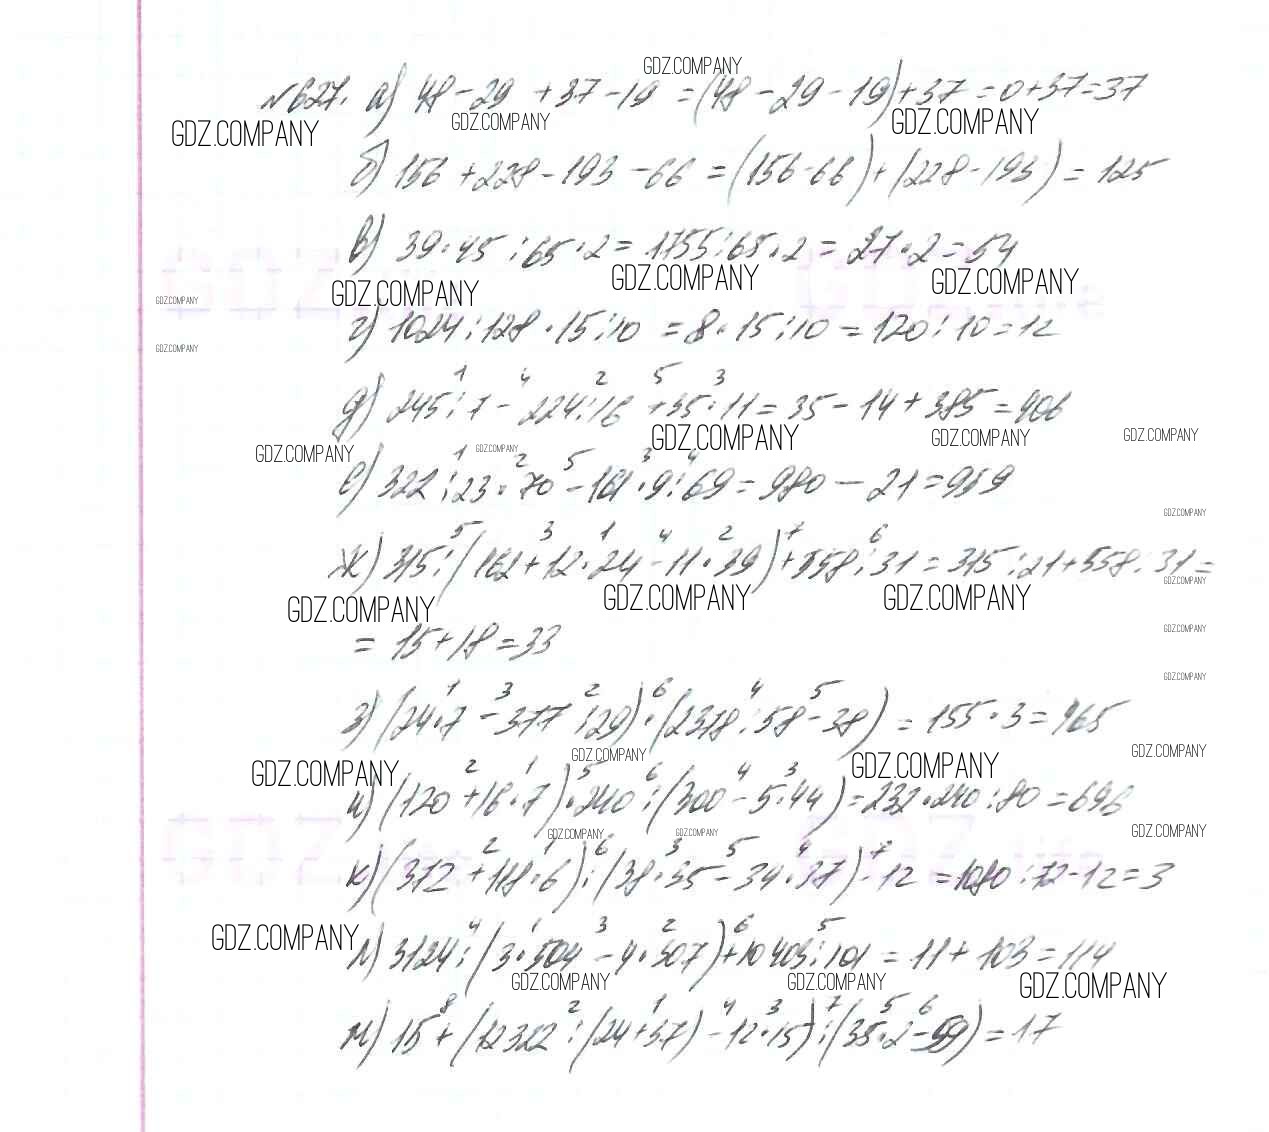 GDZ.COMPANY
№627. а) 48-29+37-19=(48-29-19)+37=0+37=37
GDZ.COMPANY GDZ.COMPANY GDZ.COMPANY
б) 156+228-193-66=(156-66)+(228-193)=125
в) 39·45:65·2=1755:65·2=27·2=54
GDZ.COMPANY GDZ.COMPANY GDZ.COMPANY GDZ.COMPANY
г) 1024:128·15:10=8·15:10=120:10=12
GDZ.COMPANY
1 4 2 5 3
д) 245:7-224:16+35·11=35-14+385=406
GDZ.COMPANY GDZ.COMPANY GDZ.COMPANY GDZ.COMPANY GDZ.COMPANY
1 2 5 3 4
е) 322:23·70-161·9:69=980-21=959
GDZ.COMPANY
5 3 1 4 2 7 6
ж) 315:(162+12·24-11·39)+558:31=315:21+558:31=
GDZ.COMPANY GDZ.COMPANY GDZ.COMPANY GDZ.COMPANY
=15+18=33
GDZ.COMPANY
GDZ.COMPANY
1 3 2 6 4 5
з) (24·7-377:29)·(2378:58-38)=155·3=465
GDZ.COMPANY GDZ.COMPANY GDZ.COMPANY GDZ.COMPANY
2 1 5 6 4 3
и) (120+16·7)·240:(300-5·44)=232·240:80=696
GDZ.COMPANY GDZ.COMPANY GDZ.COMPANY
2 1 6 3 5 4 7
к) (372+118·6):(38·35-34·37)-12=1080:72-12=3
GDZ.COMPANY
4 1 3 2 6 5
л) 3124:(3·504-4·307)+10403:101=11+103=114
GDZ.COMPANY GDZ.COMPANY GDZ.COMPANY
8 2 1 4 3 7 5 6
м) 15+(12322:(24+37)-12·15):(35·2-59)=17